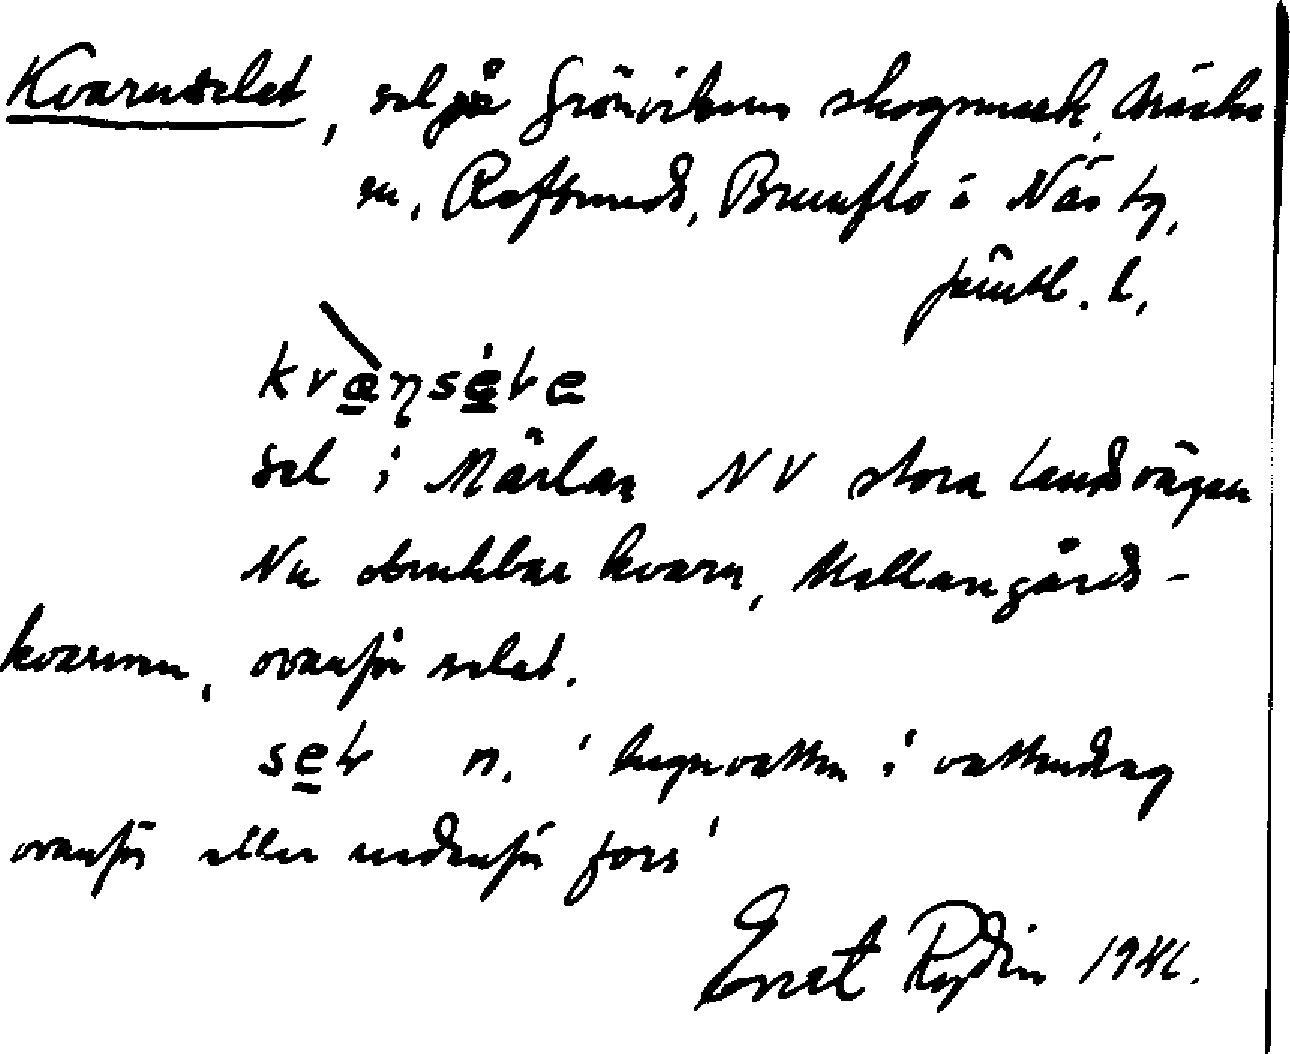 Kvarnselet, sel på Grönvikens skogsmark, Näcks
m, Revsund, Brunflo o Näs tg,
Jämtl. l,
kvæṇsele
sel i Märlan NV stora landsvägen
Nu obrukbar kvarn, Mellangårds-
kvarnen, ovanför selet.
sel n. 'lugnvatten i vattendrag
ovanför eller nedanför fors'
Ernst Rydin 1941.